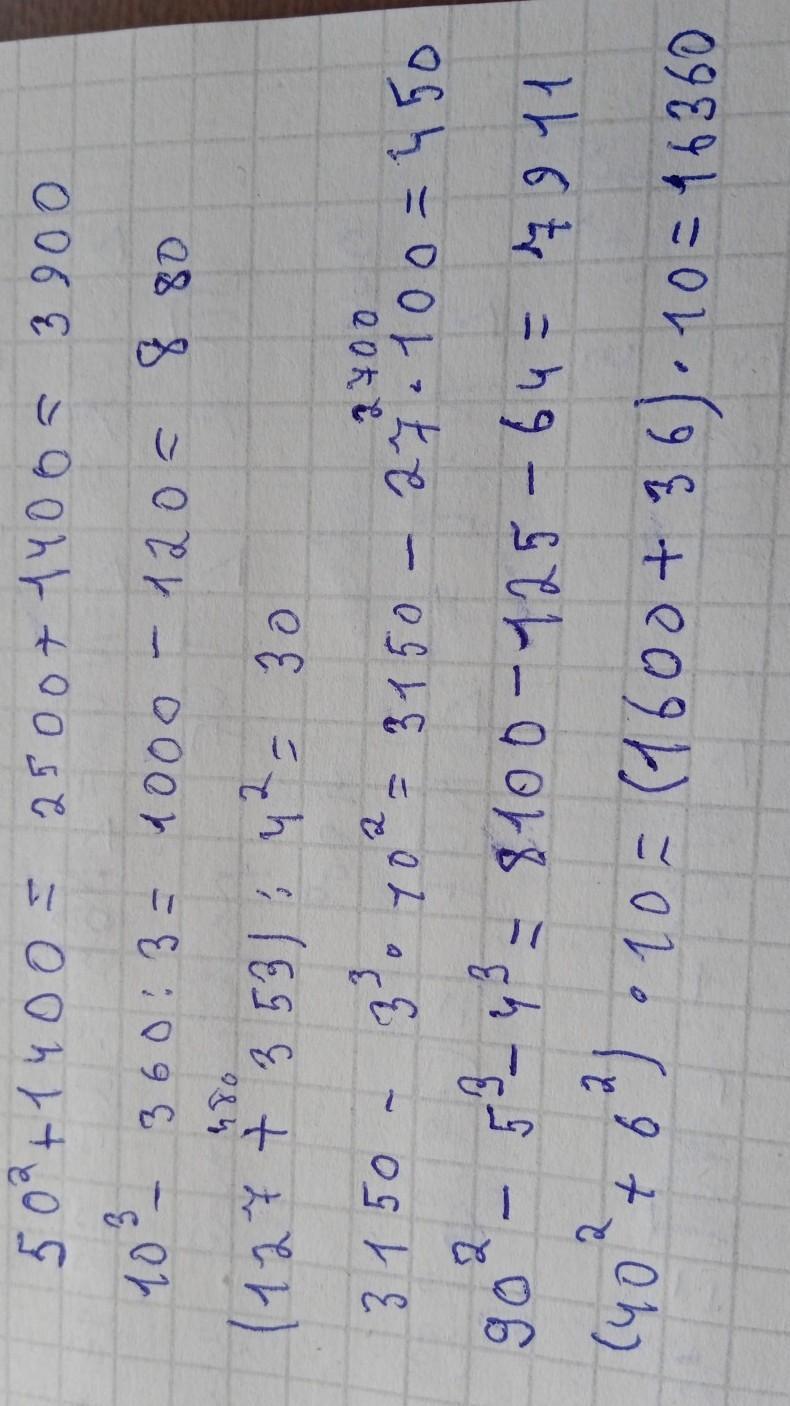 50² + 1400 = 2500 + 1400 = 3900
10³ - 360 : 3 = 1000 - 120 = 880
480
(127 + 353) : 4² = 30
2700
3150 - 3³ · 10² = 3150 - 27 · 100 = 450
90² - 5³ - 4³ = 8100 - 125 - 64 = 7911
(40² + 6²) · 10 = (1600 + 36) · 10 = 16360